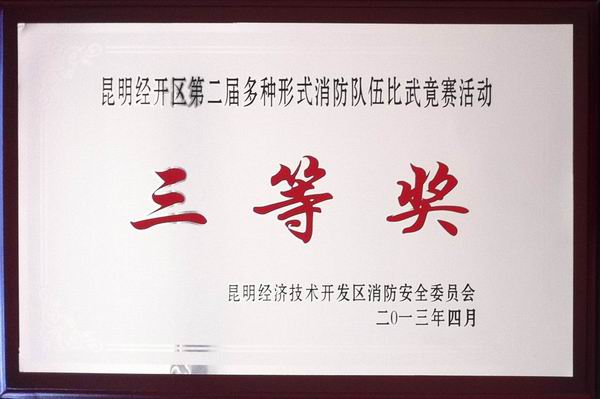 昆明经开区第二届多种形式消防队伍比武竟赛活动
三等奖
昆明经济技术开发区消防安全委员会
二0一三年四月